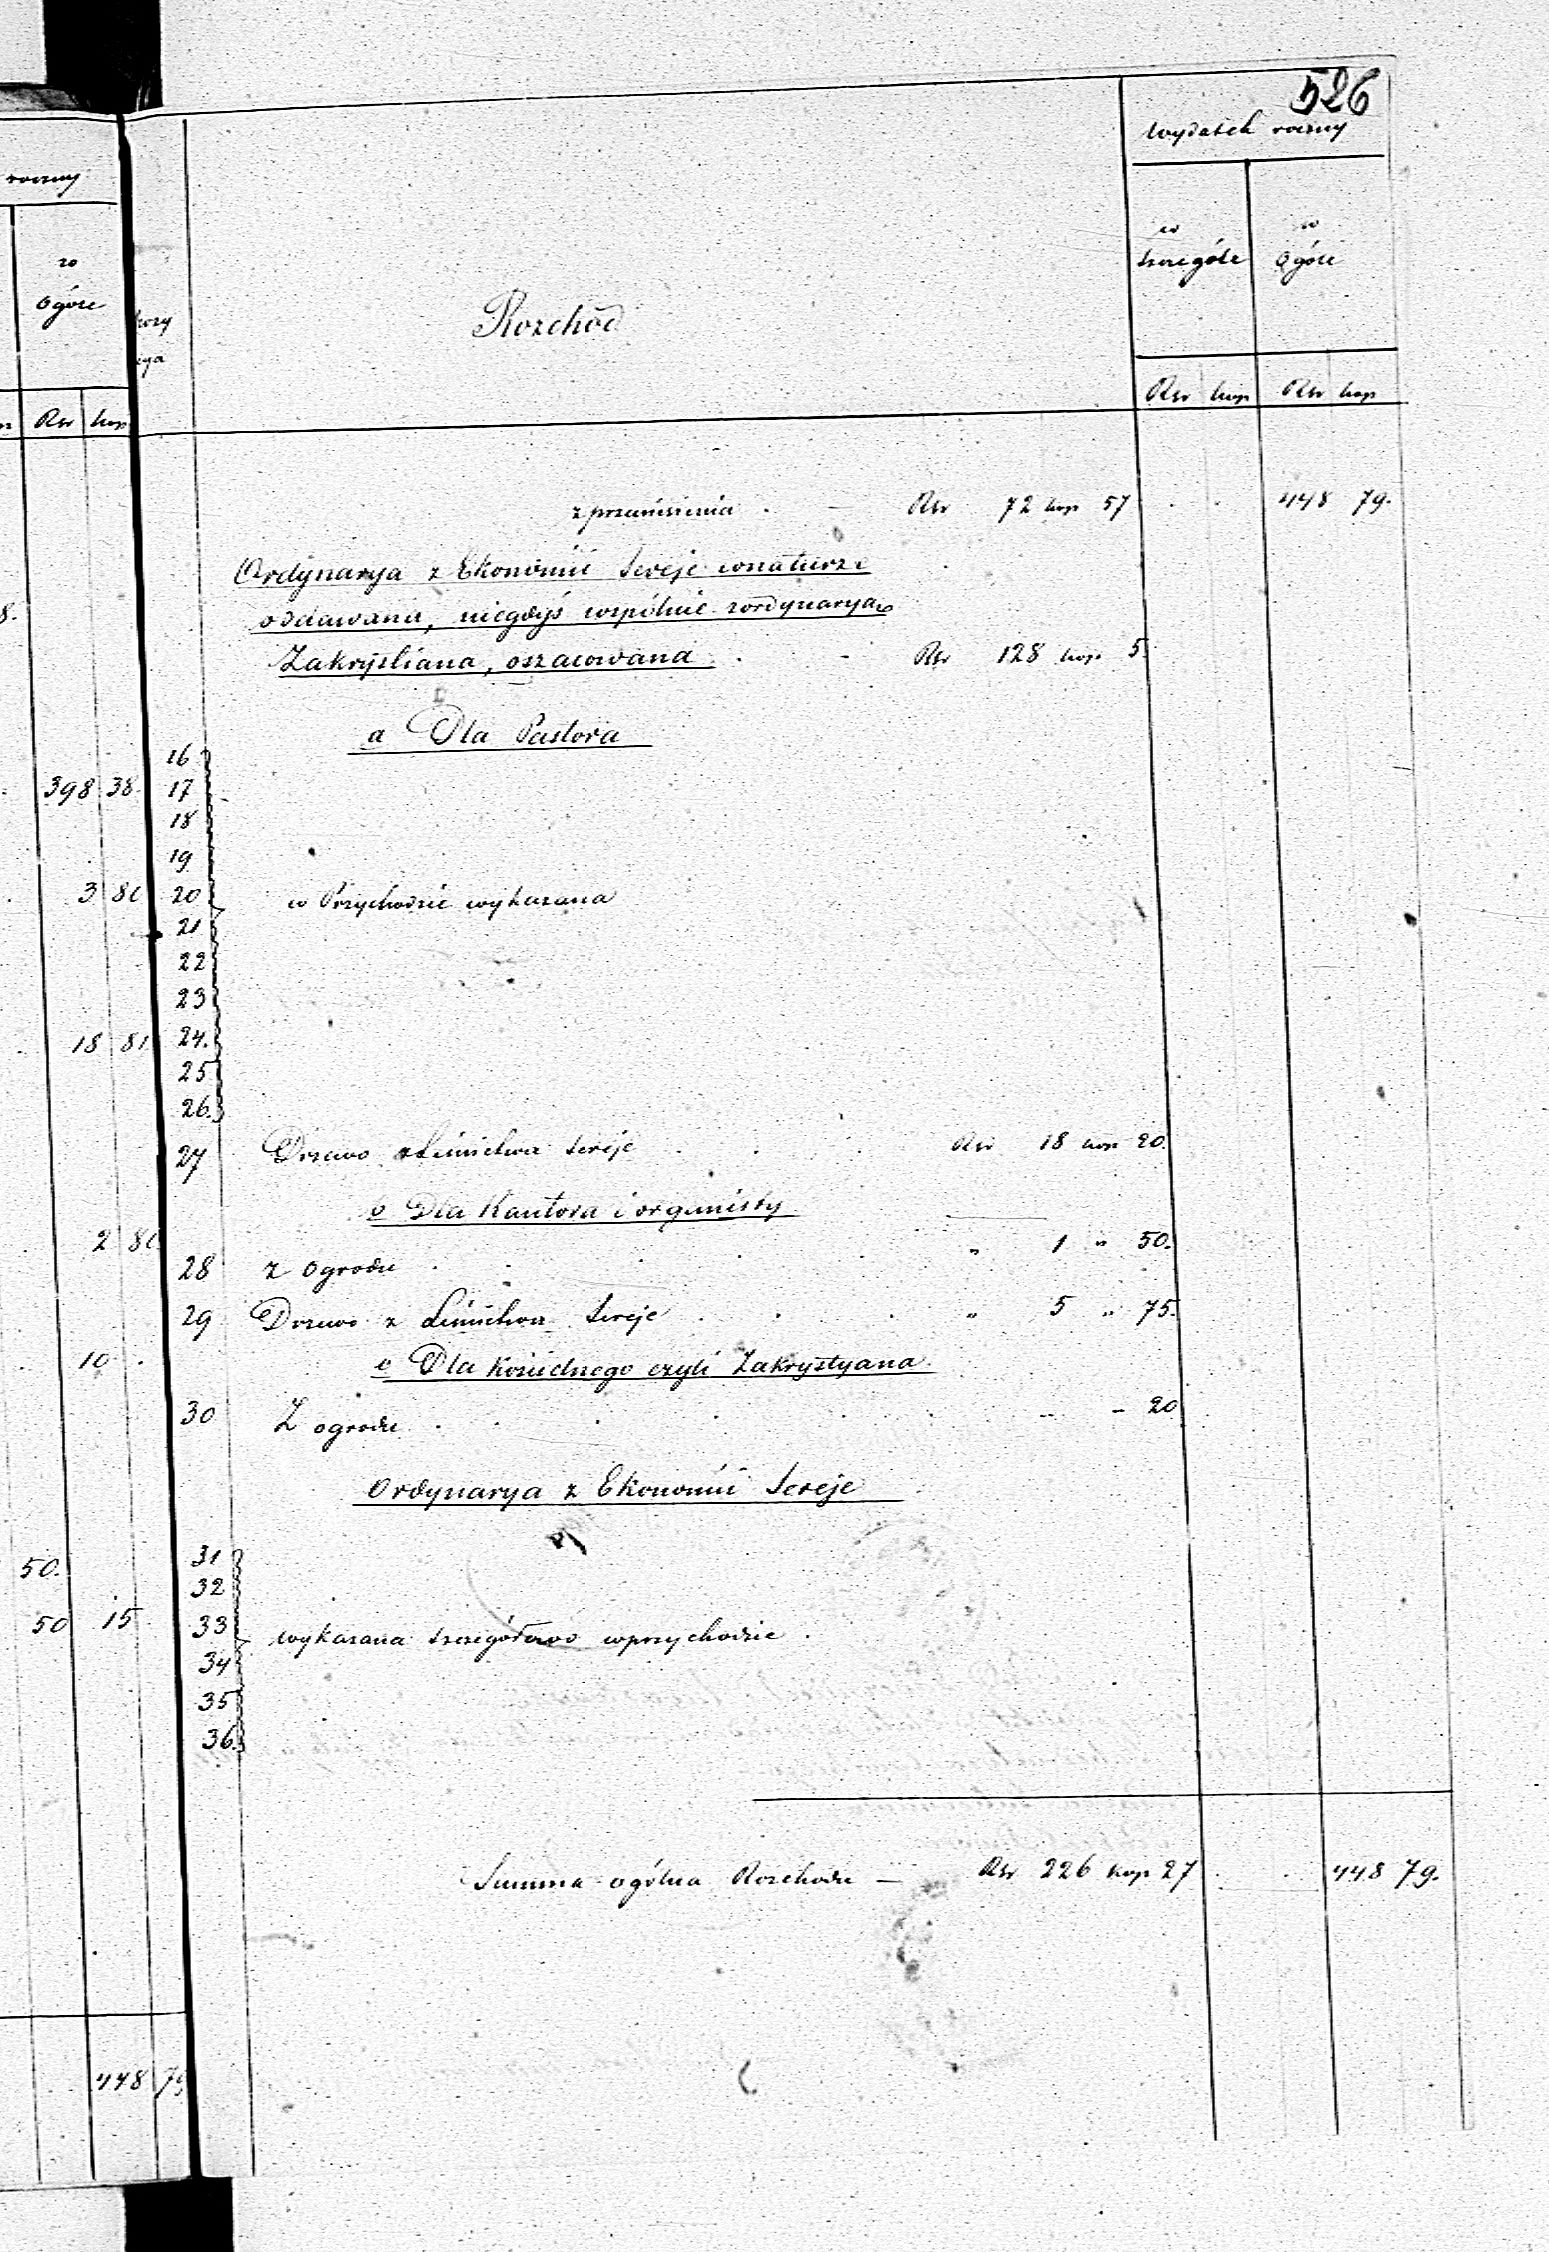 526
Wydatek roczny
w szczególe
w ogóle
Rozchód
Rsr kop Rsr kop
z przeniesienia . - Rsr 72 kop 57 . . 448 79.
Ordynarya z Ekonomii Sereje wnaturze
oddawana, niegdyś wspólnie zordynarya
Zakrystiana, oszacowana . - Rsr 128 kop 5.
a Dla Pastora
16
17
18
19
20 w Przychodzie wykazana
21
22
23
24.
25
26.
27 Drzewo z Leśnictwa Sereje . . . Rsr 18 kop 20.
b Dla Kantora i organisty
28 z ogrodu . . . . " 1 " 50.
29 Drzewo z Leśnictwa Sereje . . . " 5 " 75.
c Dla Kościelnego czyli Zakrystyana
30 Z ogrodu . . . . . - - 20
Ordynarya z Ekonomii Sereje
31
32
33 wykazana szczegółowo wprzychodzie .
34
35
36.
Summa ogólna Rozchodu — Rsr 226 kop 27 . . 448 79.
roczny
w
ogóle
Rsr kop
8.
398 38
3 80
18 81
2 80
10 .
50.
50 15
448 79